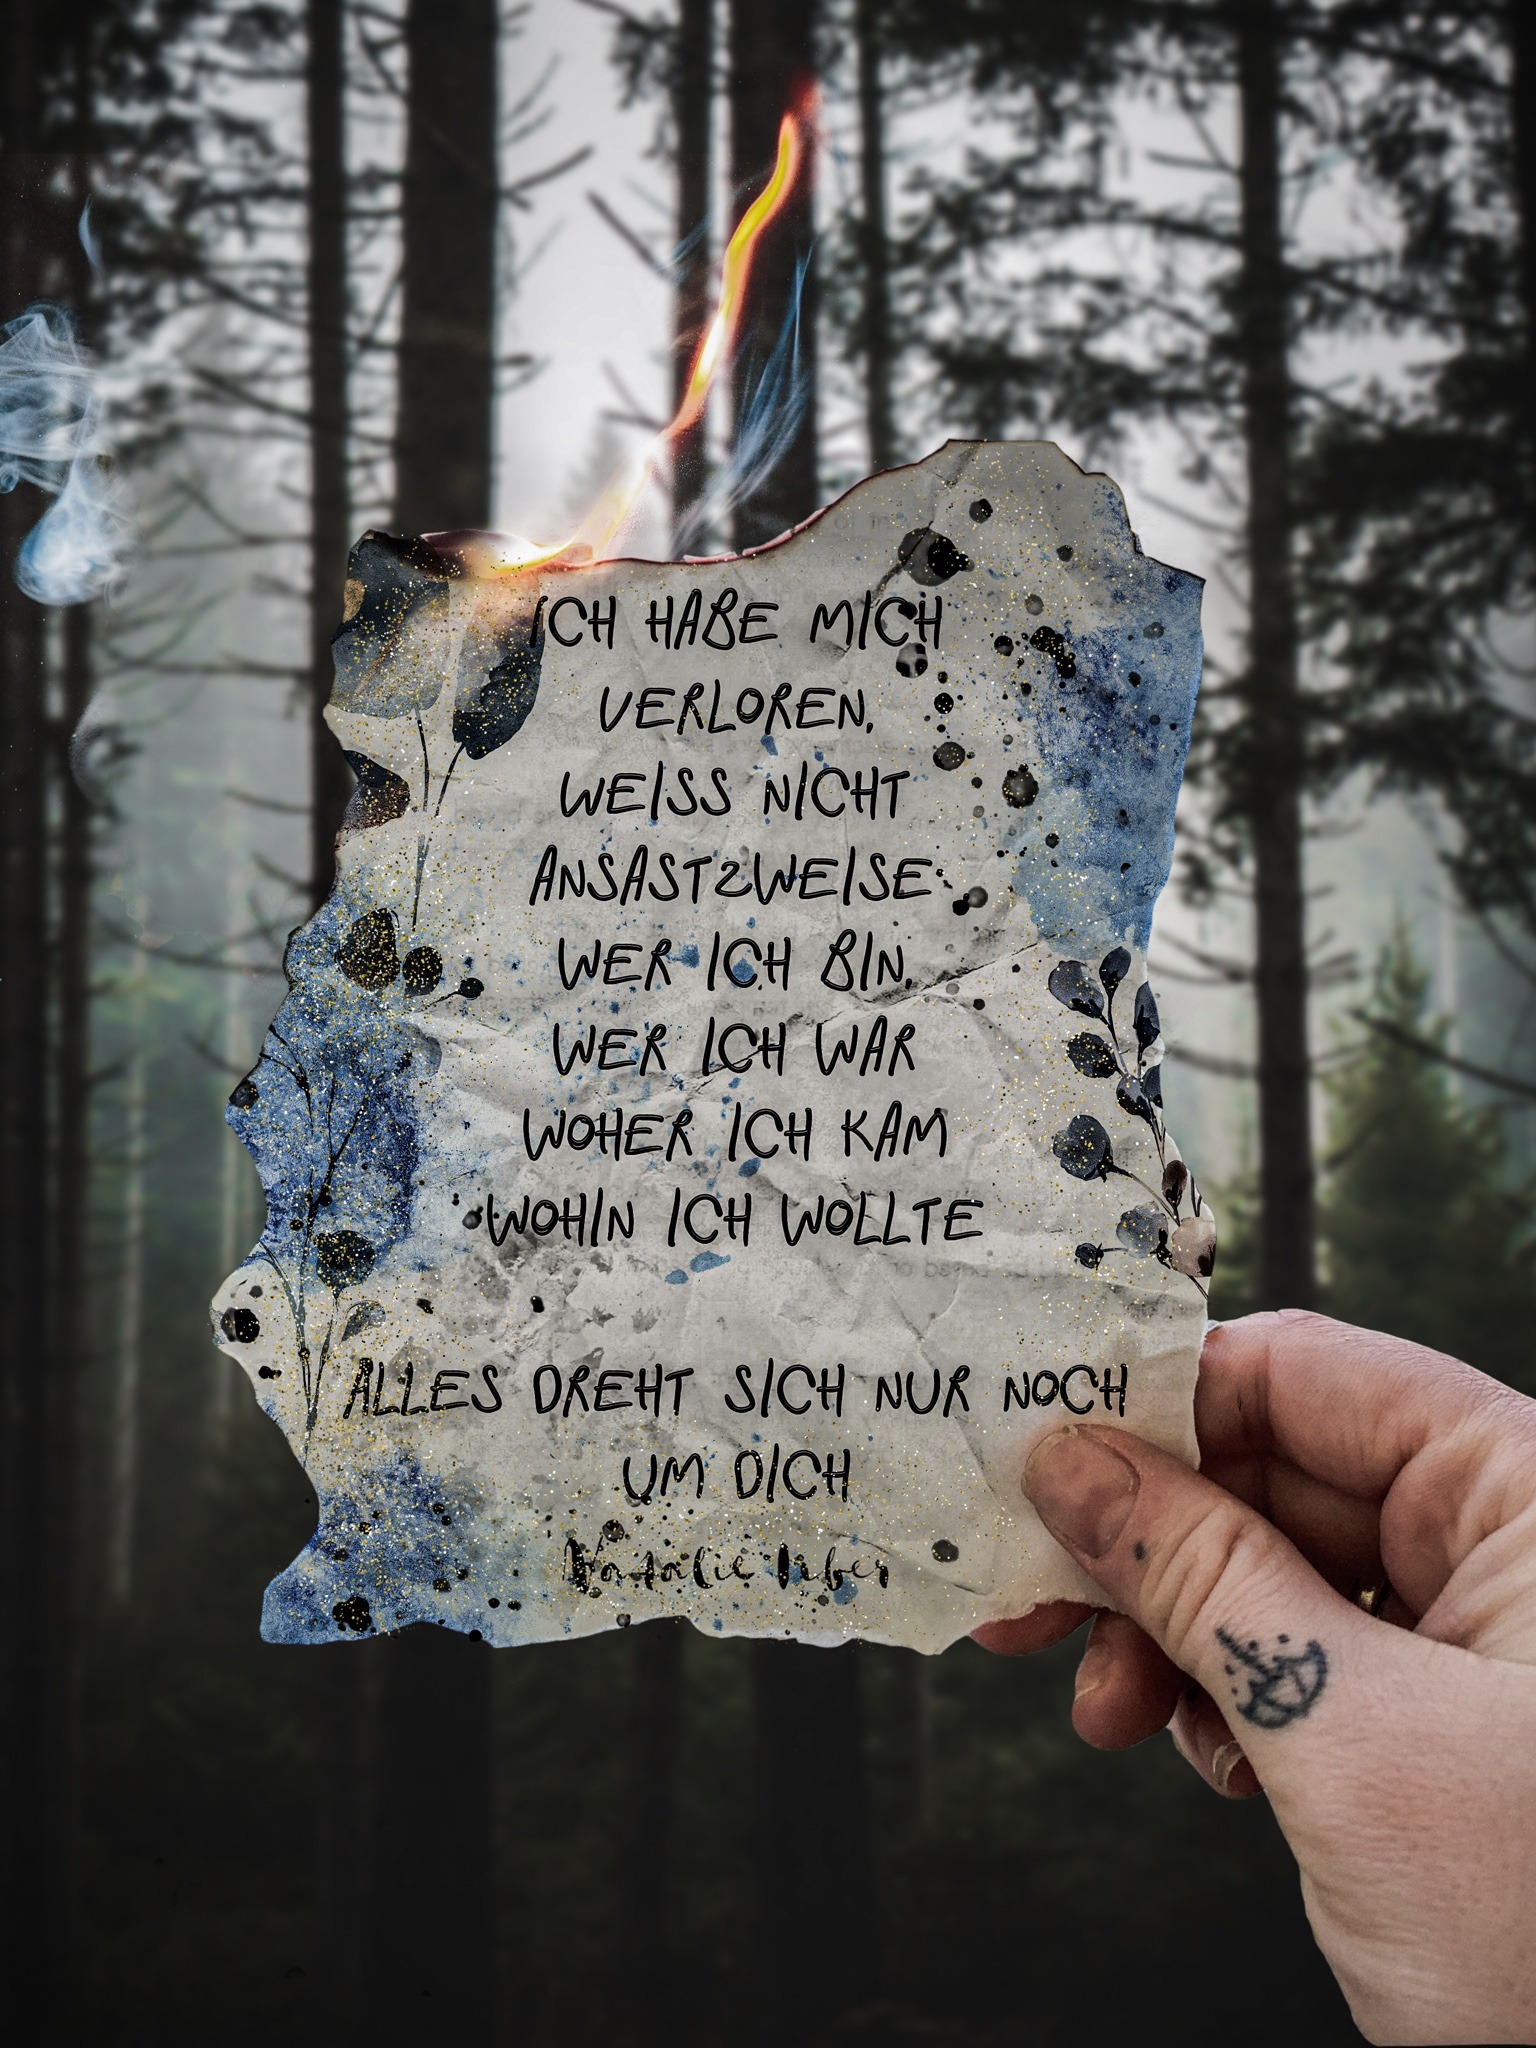 ICH HABE MICH
VERLOREN,
WEISS NICHT
ANSASTZWEISE
WER ICH BIN,
WER ICH WAR
WOHER ICH KAM
WOHIN ICH WOLLTE
ALLES DREHT SICH NUR NOCH
UM DICH
Natalie